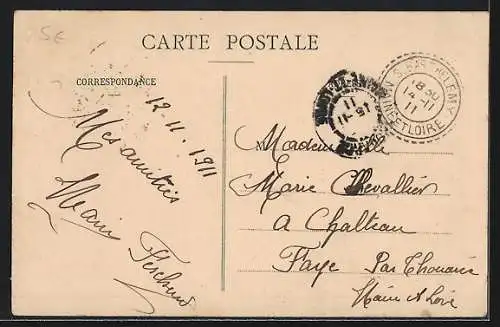 5€
CARTE POSTALE
CORRESPONDANCE
12. 11. 1911
Mes amitiés
Mademoiselle
Marie Chevallier
A Chalteau
Faye Par Thouarcé
Maine & Loire
18 30
14-11
11
MAINE ET LOIRE
15-11
11